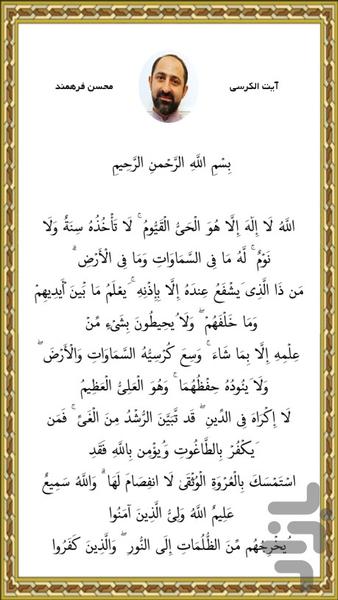 آیت الکرسی
محسن فرهمند
بِسْمِ اللَّهِ الرَّحْمنِ الرَّحِيمِ
اللَّهُ لَا إِلَهَ إِلَّا هُوَ الْحَيُّ الْقَيُّومُ ۚ لَا تَأْخُذُهُ سِنَةٌ وَلَا
نَوْمٌ ۚ لَّهُ مَا فِي السَّمَاوَاتِ وَمَا فِي الْأَرْضِ ۗ
مَن ذَا الَّذِي يَشْفَعُ عِندَهُ إِلَّا بِإِذْنِهِ ۚ يَعْلَمُ مَا بَيْنَ أَيْدِيهِمْ
وَمَا خَلْفَهُمْ ۖ وَلَا يُحِيطُونَ بِشَيْءٍ مِّنْ
عِلْمِهِ إِلَّا بِمَا شَاءَ ۚ وَسِعَ كُرْسِيُّهُ السَّمَاوَاتِ وَالْأَرْضَ ۖ
وَلَا يَئُودُهُ حِفْظُهُمَا ۚ وَهُوَ الْعَلِيُّ الْعَظِيمُ
لَا إِكْرَاهَ فِي الدِّينِ ۖ قَد تَّبَيَّنَ الرُّشْدُ مِنَ الْغَيِّ ۚ فَمَن
يَكْفُرْ بِالطَّاغُوتِ وَيُؤْمِن بِاللَّهِ فَقَدِ
اسْتَمْسَكَ بِالْعُرْوَةِ الْوُثْقَىٰ لَا انفِصَامَ لَهَا ۗ وَاللَّهُ سَمِيعٌ
عَلِيمٌ اللَّهُ وَلِيُّ الَّذِينَ آمَنُوا
يُخْرِجُهُم مِّنَ الظُّلُمَاتِ إِلَى النُّورِ ۖ وَالَّذِينَ كَفَرُوا
بازار